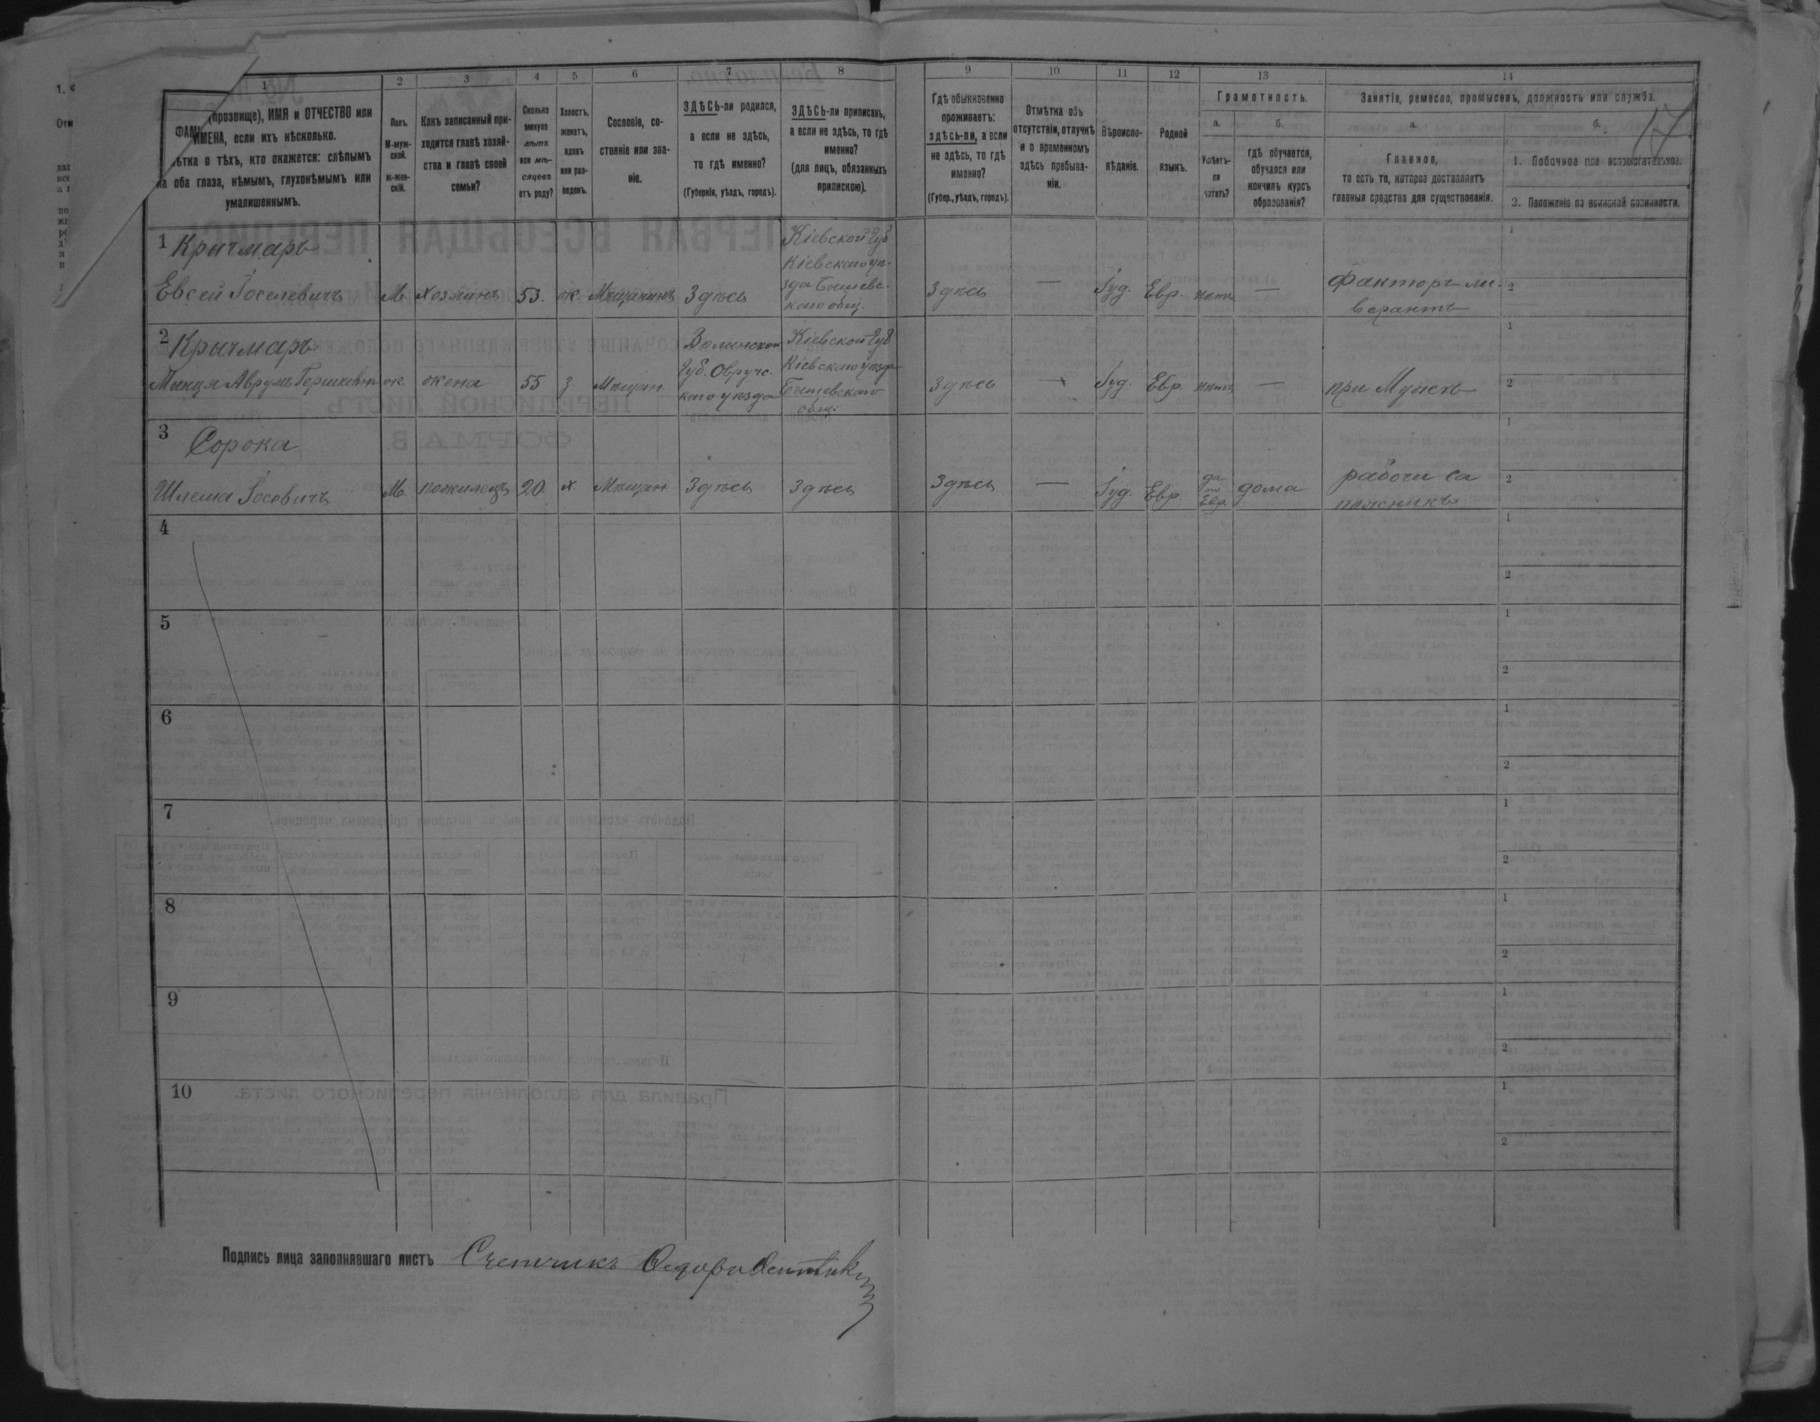 1 2 3 4 5 6 7 8 9 10 11 12 13 14
(прозвище), ИМЯ и ОТЧЕСТВО или
ИМЕНА, если ихъ нѣсколько.
о тѣхъ, кто окажется: слѣпымъ
на оба глаза, нѣмымъ, глухонѣмымъ или
умалишеннымъ.
Полъ.
М-муж-
ской.
Ж-жен-
скій.
Какъ записанный при-
ходится главѣ хозяй-
ства и главѣ своей
семьи?
Сколько
минуло
лѣтъ
или мѣ-
сяцевъ
отъ роду?
Холостъ,
женатъ,
вдовъ
или раз-
веденъ.
Сословіе, со-
стояніе или зва-
ніе.
ЗДѢСЬ-ли родился,
а если не здѣсь,
то гдѣ именно?
(Губернія, уѣздъ, городъ).
ЗДѢСЬ-ли приписанъ,
а если не здѣсь, то гдѣ
именно?
(для лицъ, обязанныхъ
припискою).
Гдѣ обыкновенно
проживаетъ:
здѣсь-ли, а если
не здѣсь, то гдѣ
именно?
(Губер., уѣздъ, городъ).
Отмѣтка объ
отсутствіи, отлучкѣ
и о временномъ
здѣсь пребыва-
ніи.
Вѣроиспо-
вѣданіе.
Родной
языкъ.
Грамотность.
а.
Умѣетъ-
ли
читать?
б.
гдѣ обучается,
обучался или
кончилъ курсъ
образованія?
Занятіе, ремесло, промыселъ, должность или служба.
а.
Главное,
то есть то, которое доставляетъ
главныя средства для существованія.
б.
1. Побочное или вспомогательное.
2. Положеніе по воинской повинности.
17
1 Крычмаръ
Евсей Іоселевичъ М. хозяинъ 53. ж. Мѣщанинъ Здѣсь
Кіевской Губ
Кіевскаго уѣ-
зда Бышевс-
каго общ.
Здѣсь — Іуд. Евр. нѣтъ —
факторъ ли-
верантъ
1
2
2 Крычмаръ
жена 55 з. Мѣщан.
Волынской
Губ. Овруч-
каго уѣзда
Кіевской Губ
Кіевскаго уѣзда
Бышевскаго
общ.
Здѣсь — Іуд. Евр. нѣтъ —
при Мужѣ
1
2
3 Сорока
Шлема Іосевичъ М. пожилецъ 20 х. Мѣщан Здѣсь Здѣсь
Здѣсь — Іуд. Евр.
да
по
Евр
дома
рабочи са
пожникъ
1
2
4
1
2
5
1
2
6
1
2
7
1
2
8
1
2
9
1
2
10
1
2
Подпись лица заполнявшаго листъ Счетчикъ